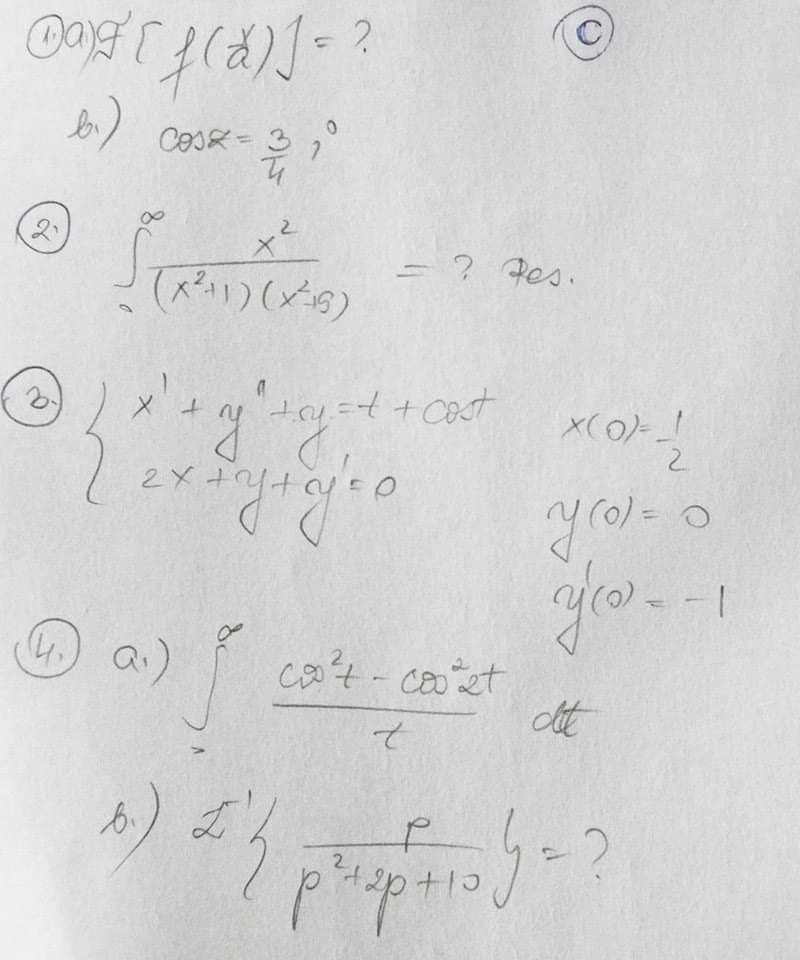 1. a.) F[f(x/a)] = ? C
b.) cos z = 3/4,
2. ∫₀^∞ x²/((x²+1)(x²+9)) = ? Rez.
3. { x' + y'' + y = t + cos t x(0) = -1/2
2x + y + y' = 0 y(0) = 0
y'(0) = -1
4. a.) ∫₀^∞ (cos²t - cos²2t)/t dt
b.) L⁻¹{p/(p²+2p+10)} = ?